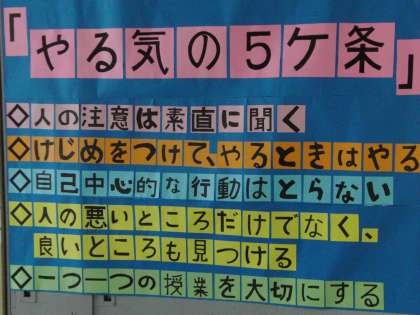 「やる気の5ケ条」
◇人の注意は素直に聞く
◇けじめをつけて、やるときはやる
◇自己中心的な行動はとらない
◇人の悪いところだけでなく、
良いところも見つける
◇一つ一つの授業を大切にする